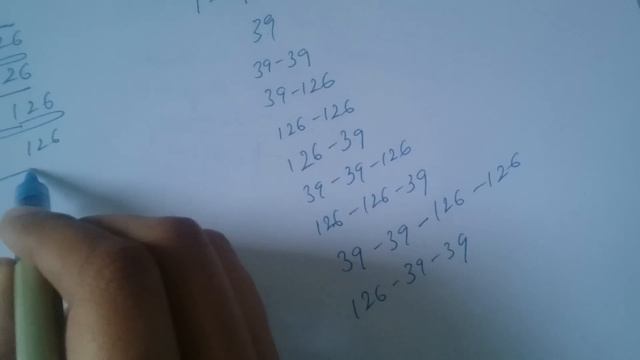 26
26
126
126
39
39-39
39-126
126-126
126-39
39-39-126
126-126-39
39-39-126-126
126-39-39